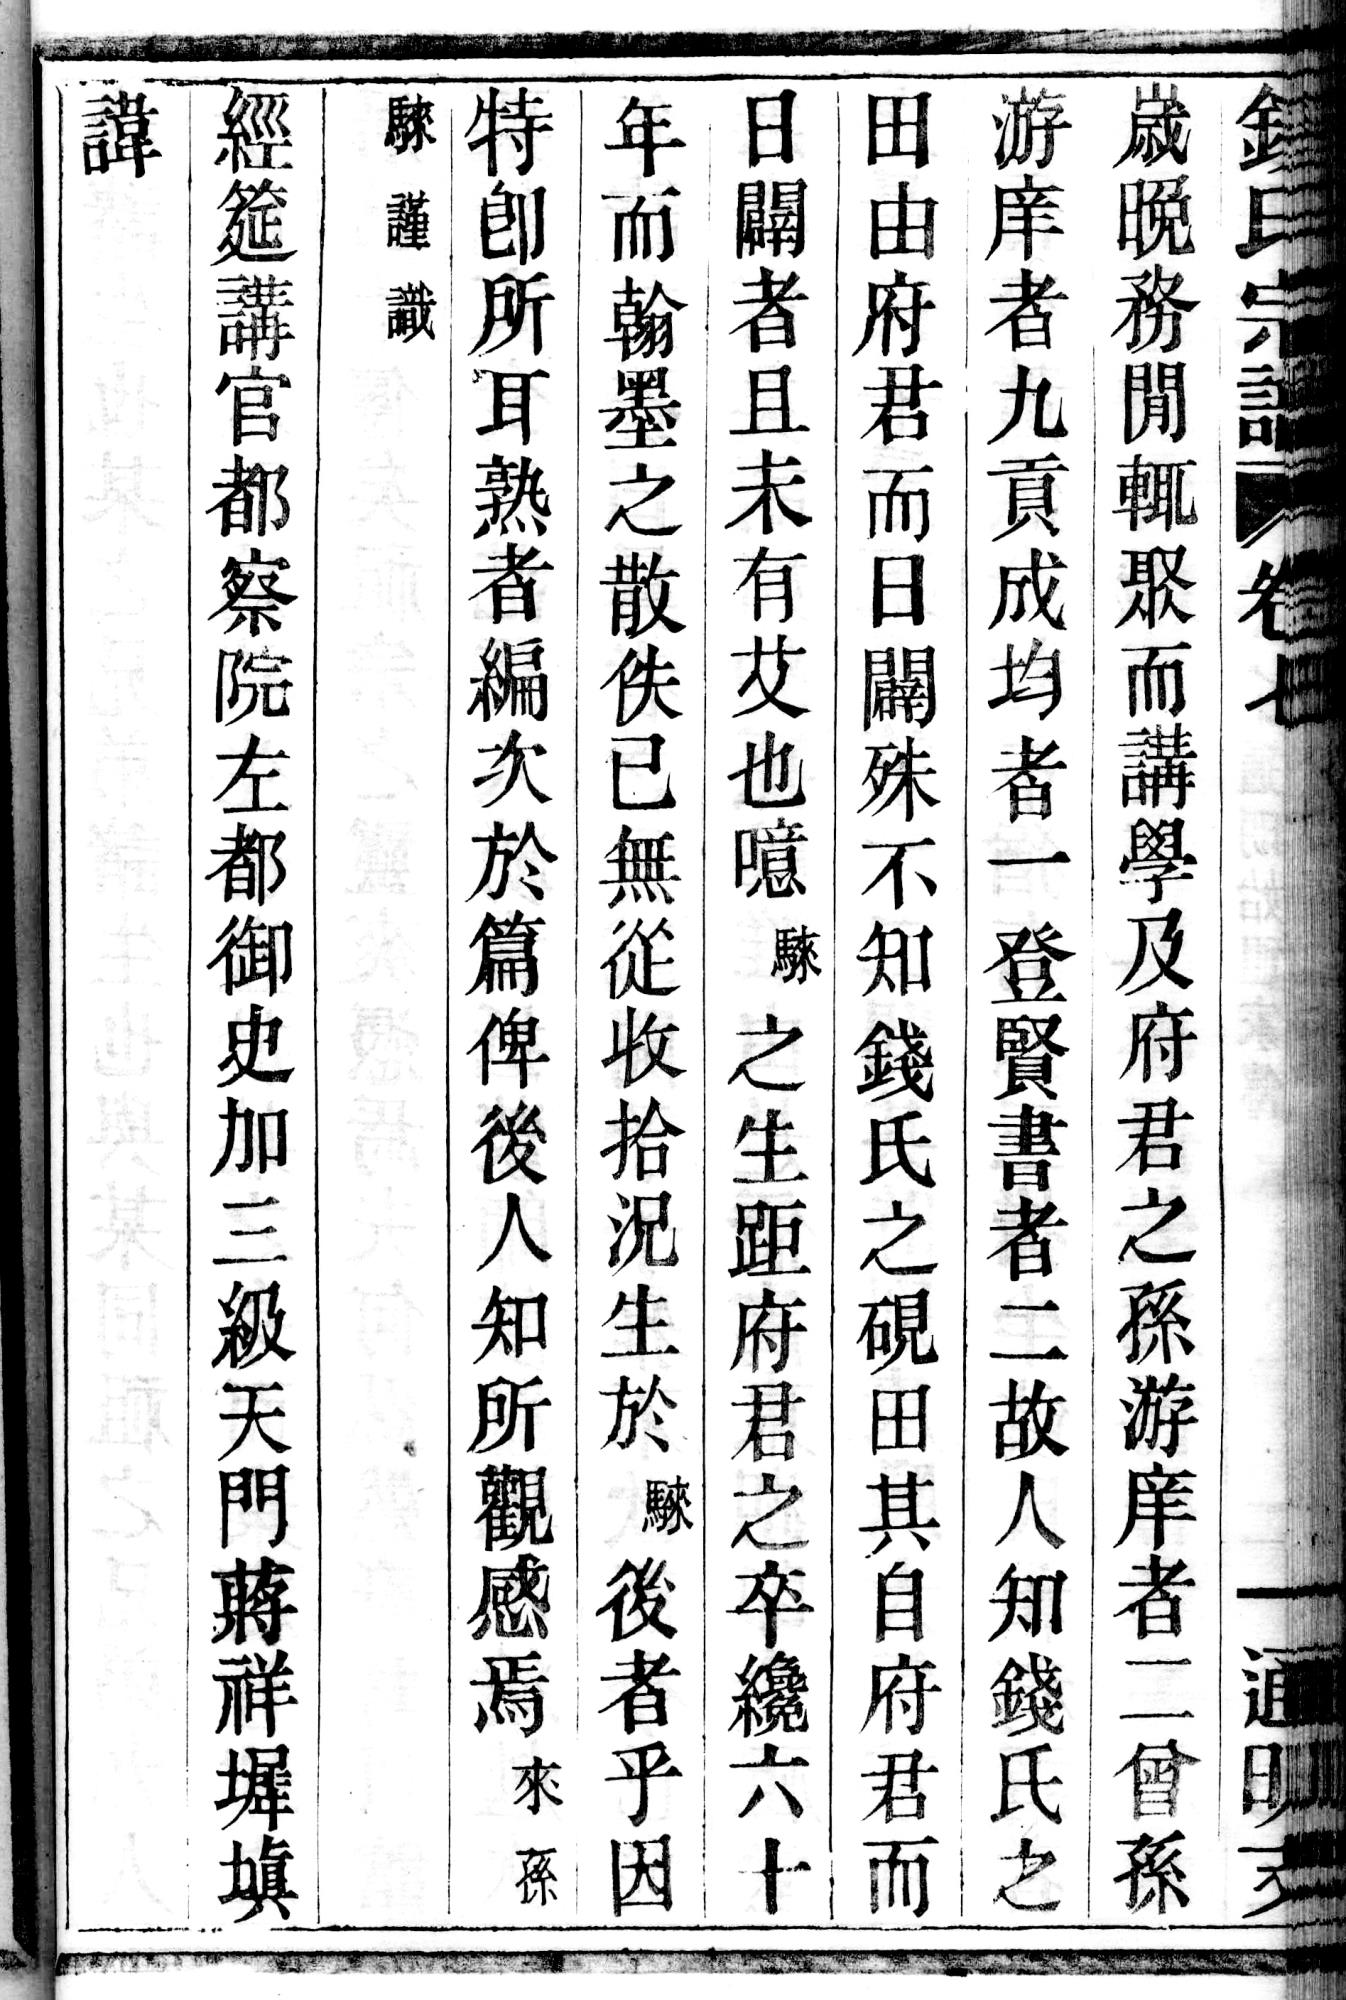 錢氏宗譜 卷七 一 通明支
歲晩務閒輒聚而講學及府君之孫游庠者二曾孫
游庠者九貢成均者一登賢書者二故人知錢氏之
田由府君而日闢殊不知錢氏之硯田其自府君而
日闢者且未有艾也噫騋之生距府君之卒纔六十
年而翰墨之散佚已無從收拾況生於騋後者乎因
特卽所耳熟者編次於篇俾後人知所觀感焉來孫
騋謹識
經筵講官都察院左都御史加三級天門蔣祥墀塡
諱